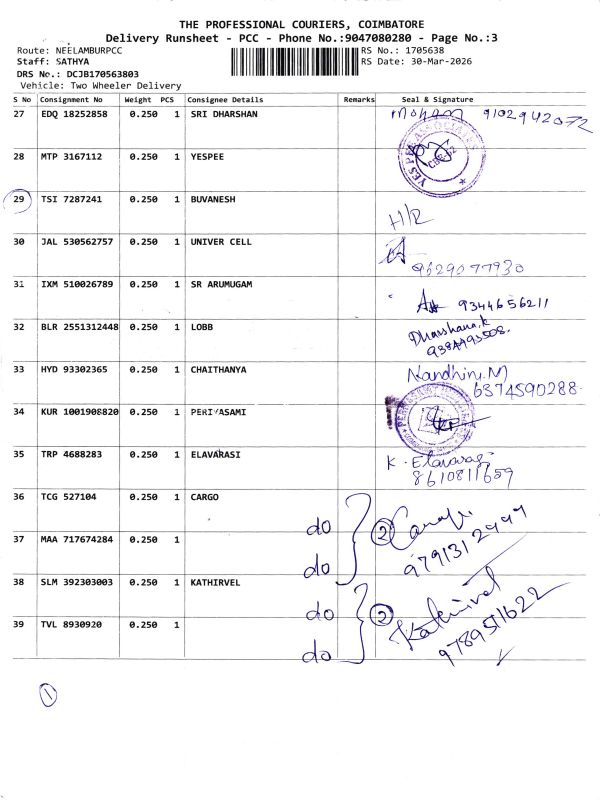 THE PROFESSIONAL COURIERS, COIMBATORE
Delivery Runsheet - PCC - Phone No.:9047080280 - Page No.:3
Route: NEELAMBURPCC RS No.: 1705638
Staff: SATHYA RS Date: 30-Mar-2026
DRS No.: DCJB170563803
Vehicle: Two Wheeler Delivery
S No Consignment No Weight PCS Consignee Details Remarks Seal & Signature
27 EDQ 18252858 0.250 1 SRI DHARSHAN Mohan 9102942072
28 MTP 3167112 0.250 1 YESPEE YES PEE ASSOCIATES
29 TSI 7287241 0.250 1 BUVANESH H/R
30 JAL 530562757 0.250 1 UNIVER CELL 9629077930
31 IXM 510026789 0.250 1 SR ARUMUGAM 9344656211
32 BLR 2551312448 0.250 1 LOBB Dharshana.k
33 HYD 93302365 0.250 1 CHAITHANYA Nandhini.M 6374590288.
34 KUR 1001908820 0.250 1 PERIYASAMI
35 TRP 4688283 0.250 1 ELAVARASI K. Elavarasi 8610811659
36 TCG 527104 0.250 1 CARGO do 2
37 MAA 717674284 0.250 1 do 9791312999
38 SLM 392303003 0.250 1 KATHIRVEL do 2 Kathirvel
39 TVL 8930920 0.250 1 do 9789511622
1